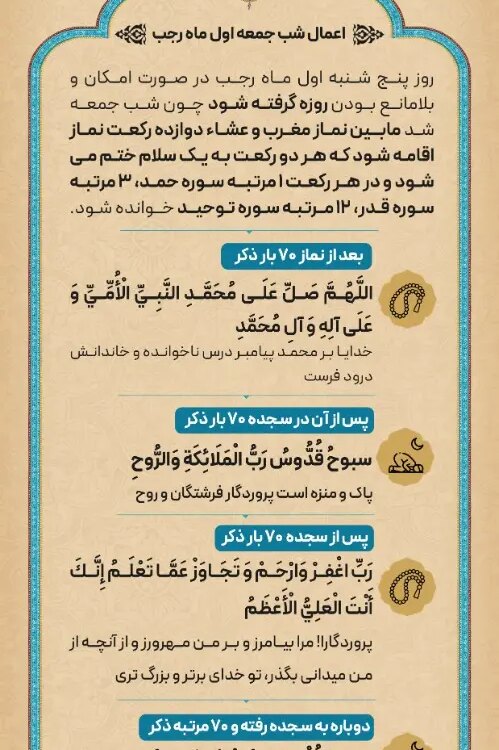 اعمال شب جمعه اول ماه رجب
روز پنج شنبه اول ماه رجب در صورت امکان و
بلامانع بودن روزه گرفته شود چون شب جمعه
شد مابین نماز مغرب و عشاء دوازده رکعت نماز
اقامه شود که هر دو رکعت به یک سلام ختم می
شود و در هر رکعت ۱ مرتبه سوره حمد، ۳ مرتبه
سوره قدر، ۱۲ مرتبه سوره توحید خوانده شود.
بعد از نماز ۷۰ بار ذکر
اللَّهُمَّ صَلِّ عَلَى مُحَمَّدٍ النَّبِيِّ الْأُمِّيِّ وَ
عَلَى آلِهِ وَ آلِ مُحَمَّدِ
خدایا بر محمد پیامبر درس ناخوانده و خاندانش
درود فرست
پس از آن در سجده ۷۰ بار ذکر
سبوحُ قُدُّوسُ رَبُّ الْمَلَائِكَةِ وَالرُّوحِ
پاک و منزه است پروردگار فرشتگان و روح
پس از سجده ۷۰ بار ذکر
رَبِّ اغْفِرْ وَارْحَمْ وَ تَجَاوَزْ عَمَّا تَعْلَمُ إِنَّكَ
أَنْتَ الْعَلِيُّ الْأَعْظَمُ
پروردگارا! مرا بیامرز و بر من مهرورز و از آنچه از
من میدانی بگذر، تو خدای برتر و بزرگ تری
دوباره به سجده رفته و ۷۰ مرتبه ذکر